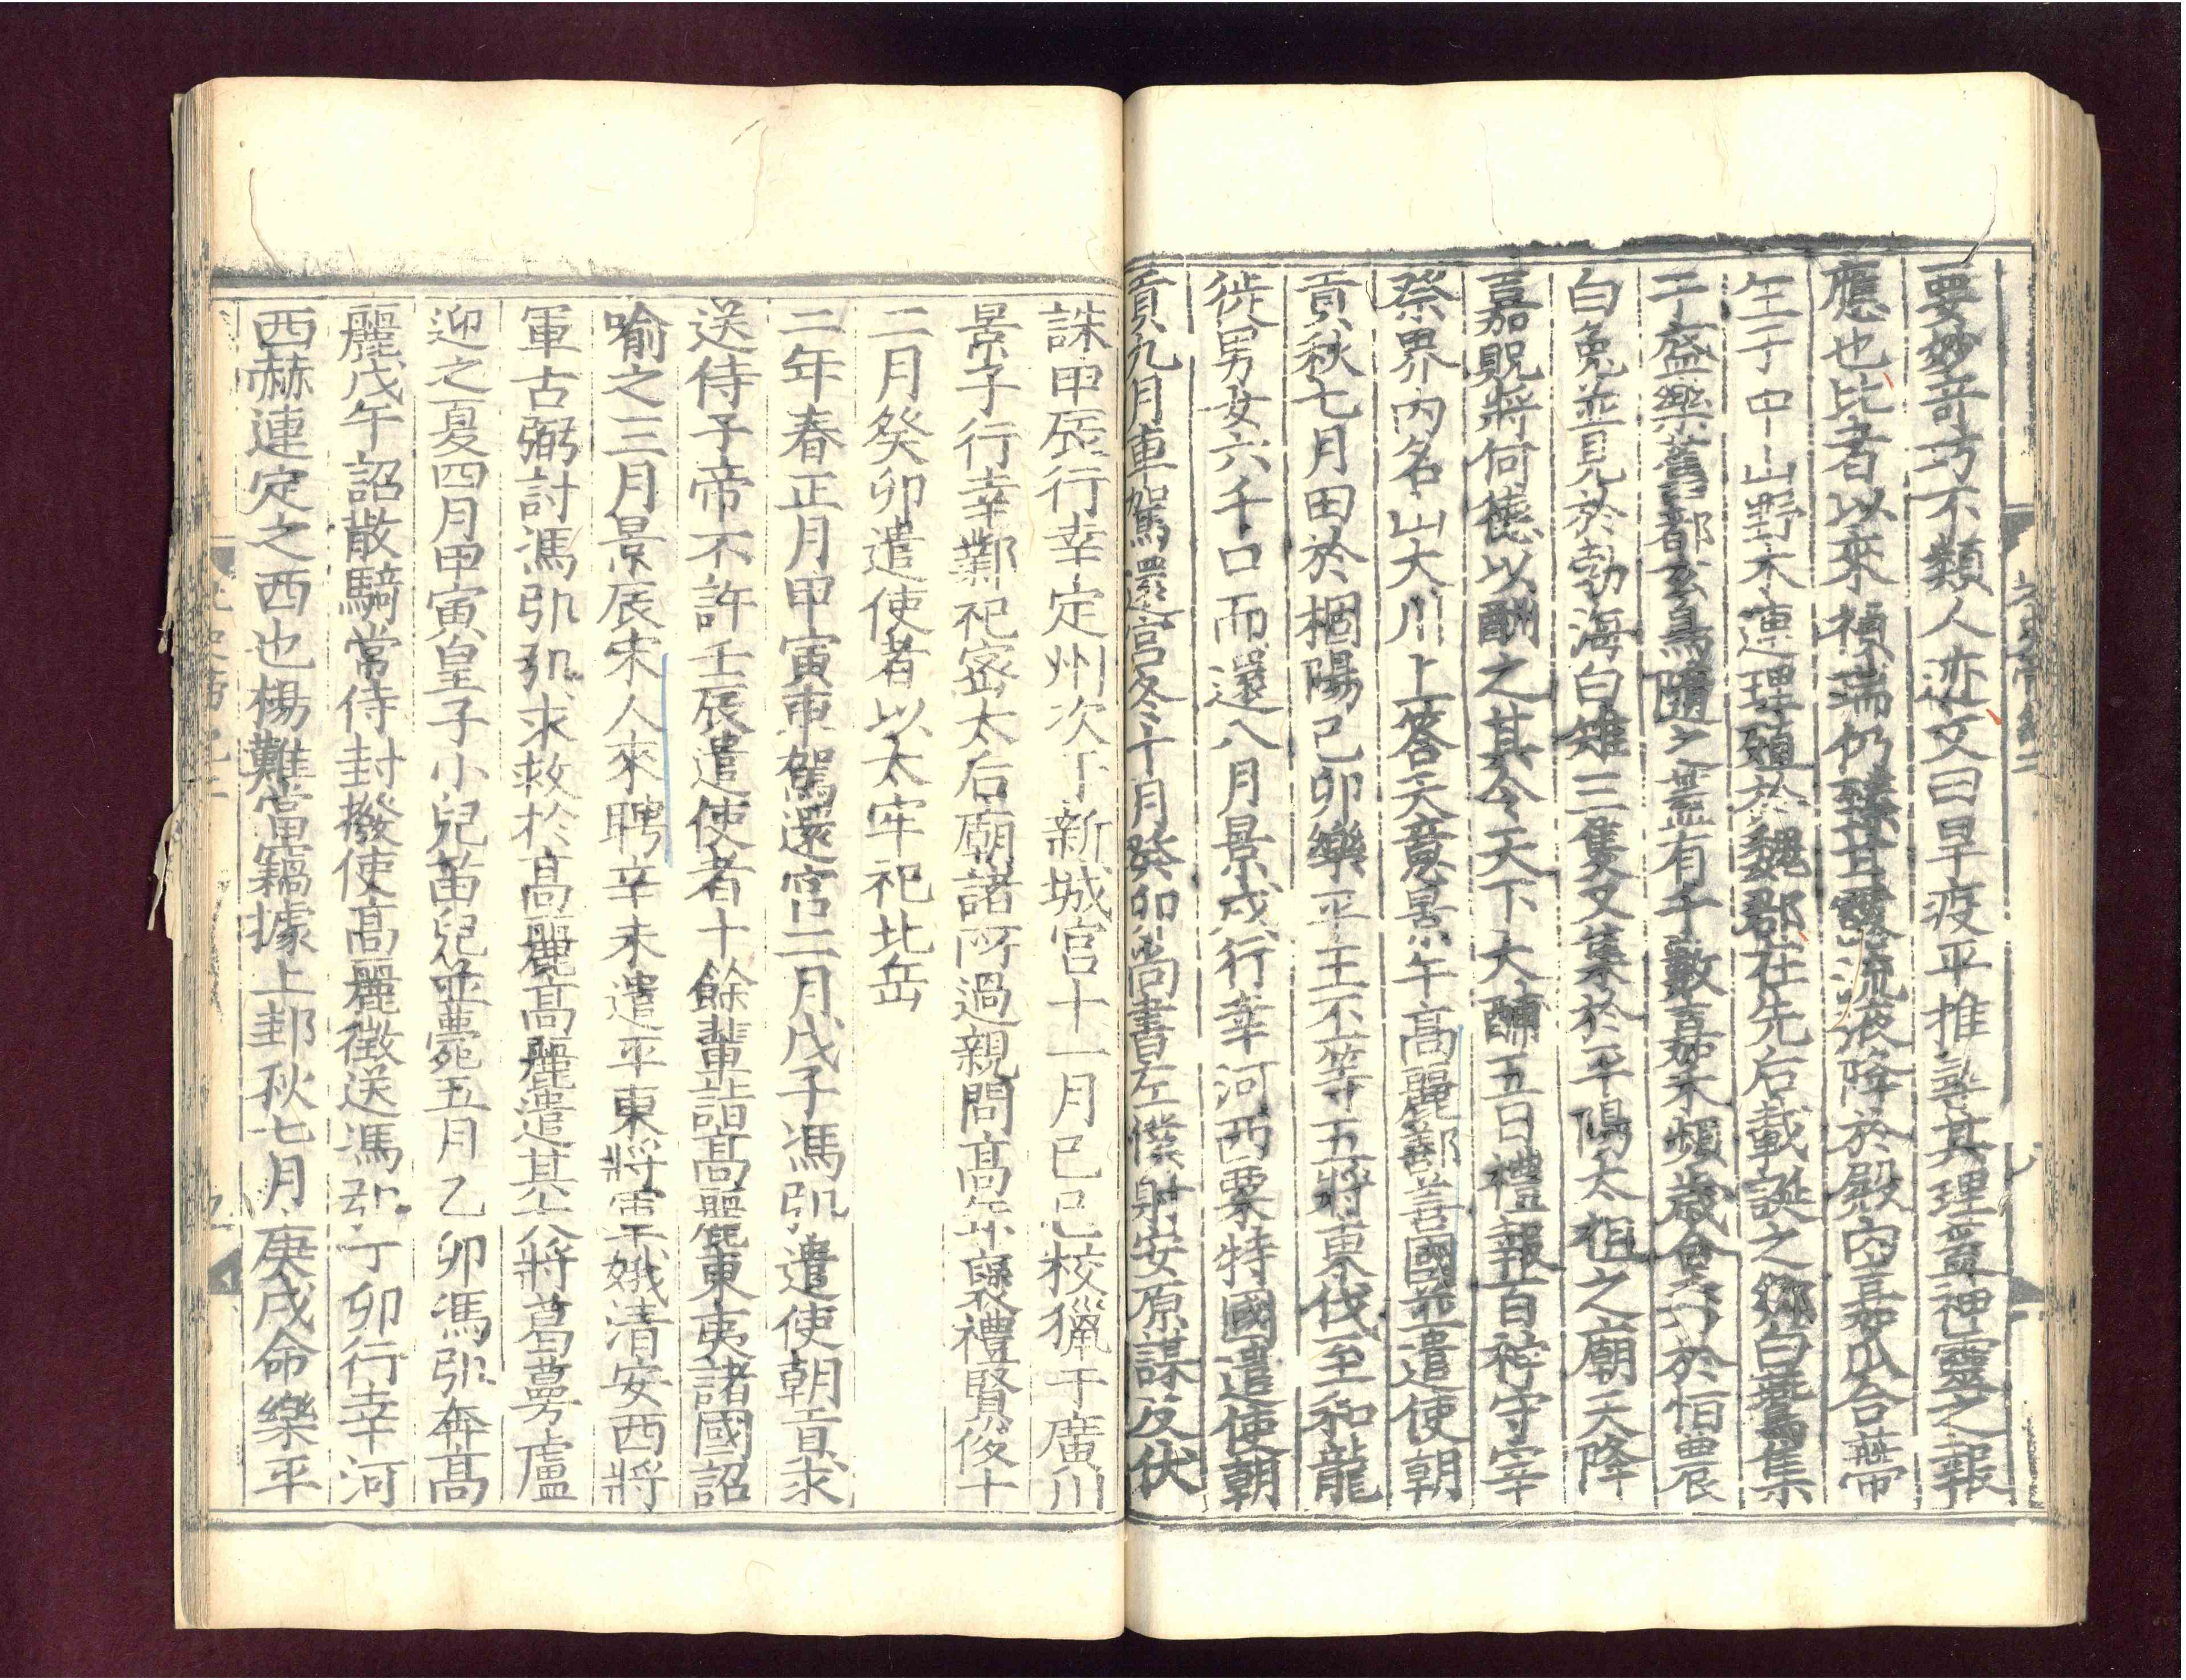 要妙竒巧不類人迹文曰旱疫平推尋其理蓋神靈之報
應也比者以來禎瑞仍臻甘露流液降於殿内嘉瓜合蔕
生于中山野木連理殖於魏郡在先后載誕之鄉白鷰集
于盛樂舊都玄鳥隨之蓋有千數嘉禾頻歳合秀於恒農
白兔並見於勃海白雉三隻又集於平陽太祖之廟天降
嘉貺將何德以酬之其令天下大酺五日禮報百神守宰
祭界内名山大川上答天意景午高麗鄯善國並遣使朝
貢秋七月田於棝陽己卯樂平王丕等五將東伐至和龍
徙男女六千口而還八月景戌行幸河西粟特國遣使朝
貢九月車駕還宮冬十月癸卯尚書左僕射安原謀反伏
誅甲辰行幸定州次于新城宮十一月己巳校獵于廣川
景子行幸鄴祀密太后廟諸所過親問高年褒禮賢俊十
二月癸卯遣使者以太牢祀北岳
二年春正月甲寅車駕還宮二月戊子馮弘遣使朝貢求
送侍子帝不許壬辰遣使者十餘輩詣高麗東夷諸國詔
喻之三月景辰宋人來聘辛未遣平東將軍娥清安西將
軍古弼討馮弘弘求救於高麗高麗遣其大將葛蔓盧
迎之夏四月甲寅皇子小兒苗兒並薨五月乙卯馮弘奔高
麗戊午詔散騎常侍封撥使高麗徵送馮弘丁卯行幸河
西赫連定之西也楊難當竊據上邽秋七月庚戌命樂平